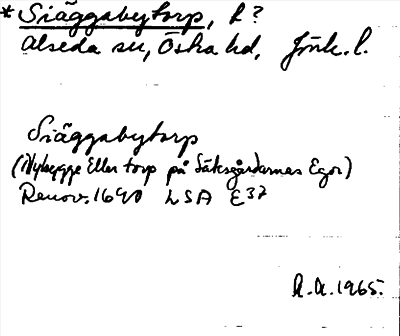 *Siäggabytorp, t?
Alseda sn, Östra hd, Jönk. l.
Siäggabytorp
(Nybygge Eller torp på Sätesgårdarnas Egor)
Renov. 1690 LSA E37
A.A. 1965.